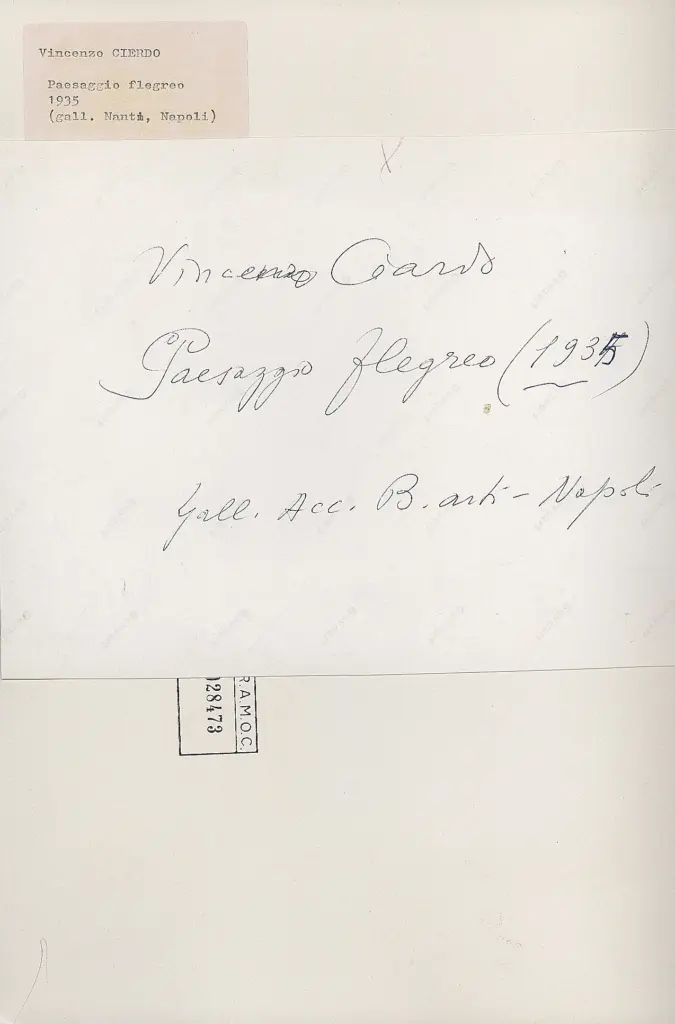 Vincenzo CIERDO
Paesaggio flegreo
1935
(gall. Nanti, Napoli)
Vincenzo Ciardo
Paesaggio flegreo (1935)
Gall. Acc. B. arti - Napoli
R.A.M.O.C.
028473